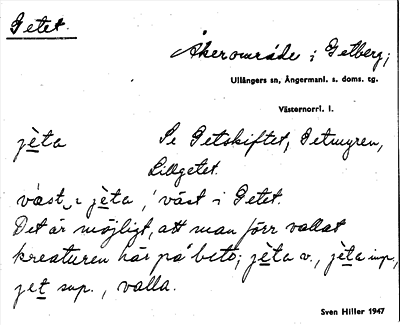 Getet.
Åkerområde i Getberg;
Ullångers sn, Ångermanl. s. doms. tg.
Västernorrl. l.
jèta
Se Getskiftet, Getmyren,
Lillgetet.
väst i jèta, 'väst i Getet.
Det är möjligt, att man förr vallat
kreaturen här på bete; jèta v., jèta imp.,
jet sup., valla.
Sven Hiller 1947